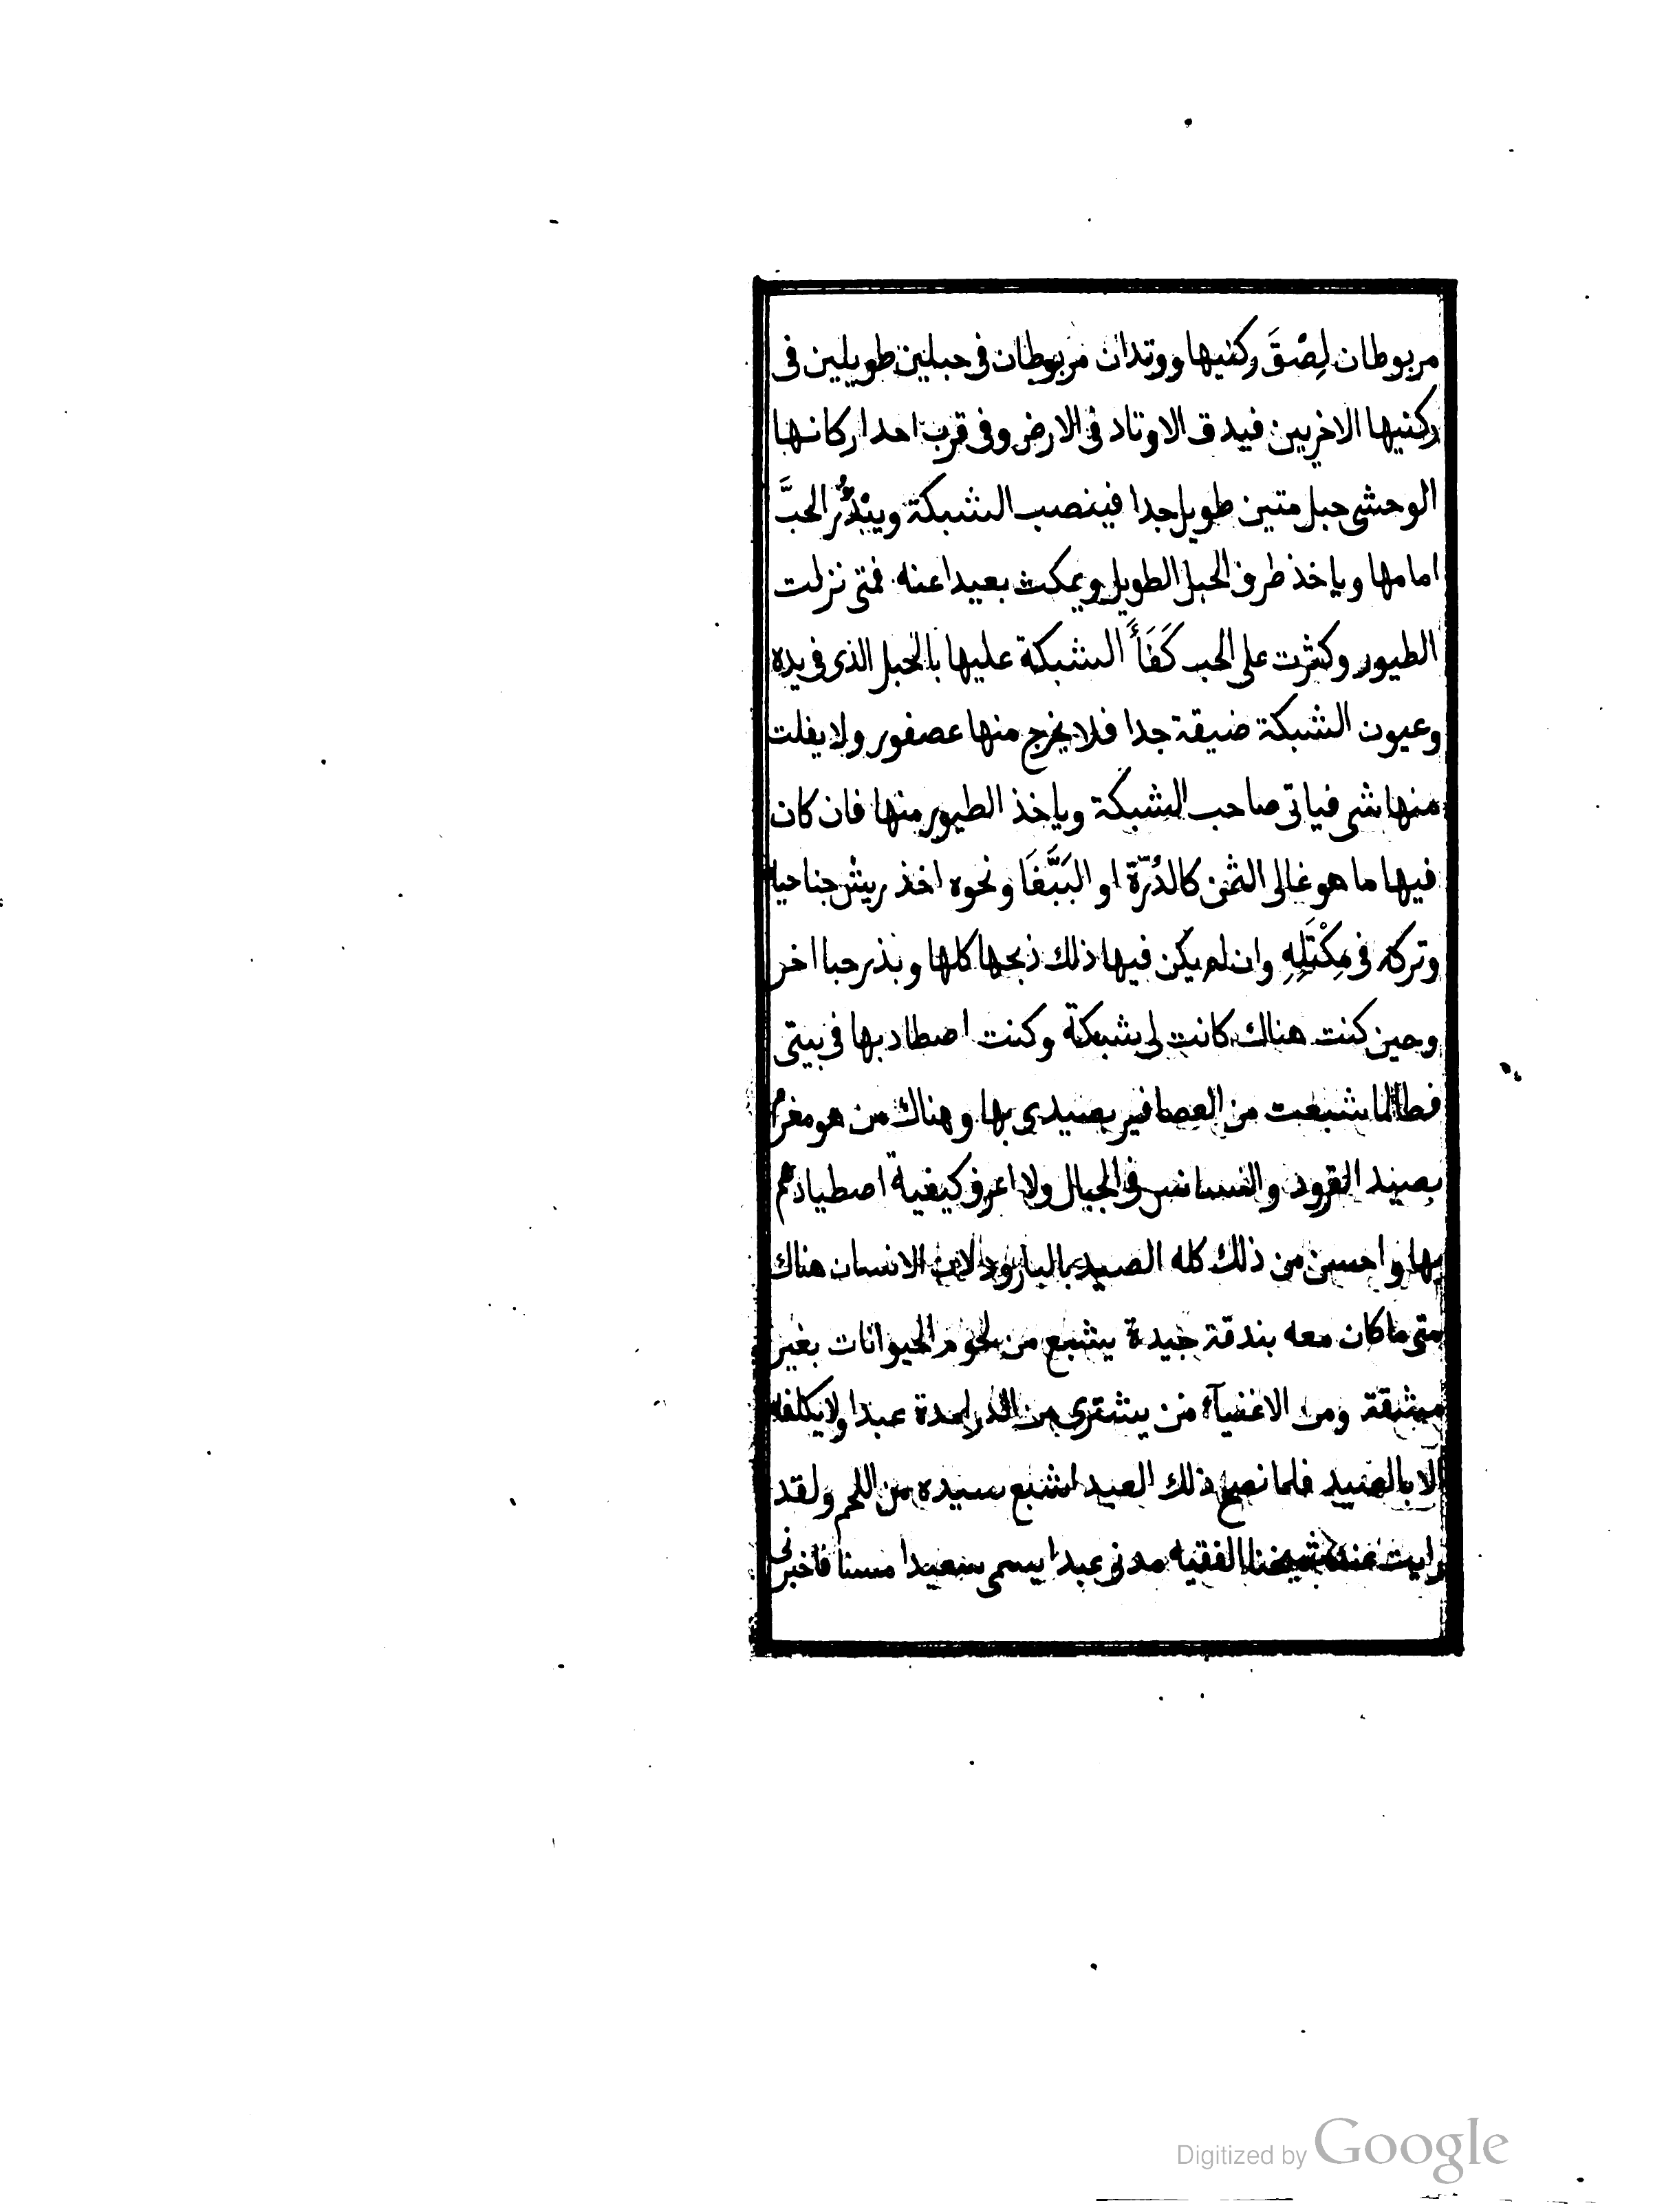 مربوطان لِصْقَ ركنيها ووتدان مربوطان فى حبلين طويلين فى
ركنيها الاخريين فيدق الاوتاد فى الارض وفى قرب احد اركانها
الوحشى حبل متين طويل جدا فينصب الشبكة ويبْذُر الحبَّ
امامها وياخذ طرف الحبل الطويل ويمكث بعيدا عنه فمتى نزلت
الطيور وكثرت على الحب كَفَأَ الشبكة عليها بالحبل الذى فى يده
وعيون الشبكة ضيقة جدا فلا يخرج منها عصفور ولا يفلت
منها شى فياتى صاحب الشبكة وياخذ الطيور منها فان كان
فيها ما هو غالى الثمن كالدُرّة او البَبَّغَا ونحوه اخذ ريش جناحيه
وتركه فى مِكْتَلِهِ وان لم يكن فيها ذلك ذبحها كلها وبذر حبا اخر
وحين كنت هناك كانت لى شبكة وكنت اصطاد بها فى بيتى
فطالما شبعت من العصافير بصيدى بها وهناك من هو مغرم
بصيد القرود والنسانس فى الجبال ولا اعرف كيفية اصطيادهم
بها واحسن من ذلك كله الصيد بالبارود لان الانسان هناك
متى ما كان معه بندقة جيدة يشبع من لحوم الحيوانات بغير
مشقة ومن الاغنيآء من يشترى من عبدا ولا يكلفه
الا بالصيد فلما نصح ذلك العبد اشبع سيده من اللحم ولقد
رايت عند شيخنا الفقيه مدنى عبدا يسمى سعيدا مسنا فاخبرنى
Digitized by Google